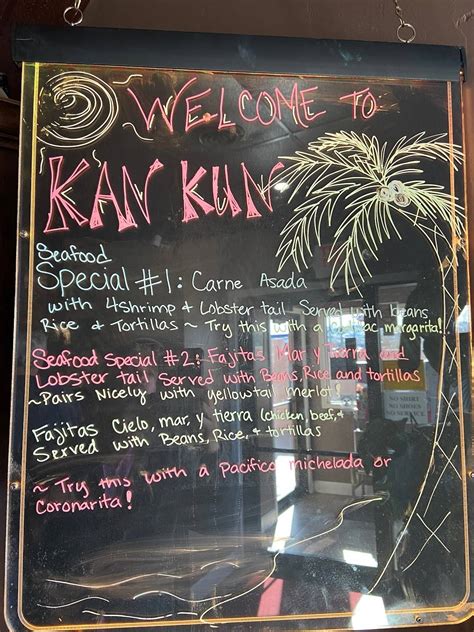 WELCOME TO:
KAN KUN
Seafood
Special #1: Carne Asada
with 4 Shrimp & Lobster tail Served with beans
Rice & Tortillas ~ Try this with a margarita!
Seafood Special #2: Fajitas Mar y Tierra and
Lobster tail Served with Beans, Rice and tortillas
~Pairs Nicely with yellowtail merlot!
Fajitas Cielo, mar, y tierra (chicken, beef, &
Served with Beans, Rice, & tortillas
~ Try this with a Pacifico michelada or
Coronarita!
NO SHIRT
NO SHOES